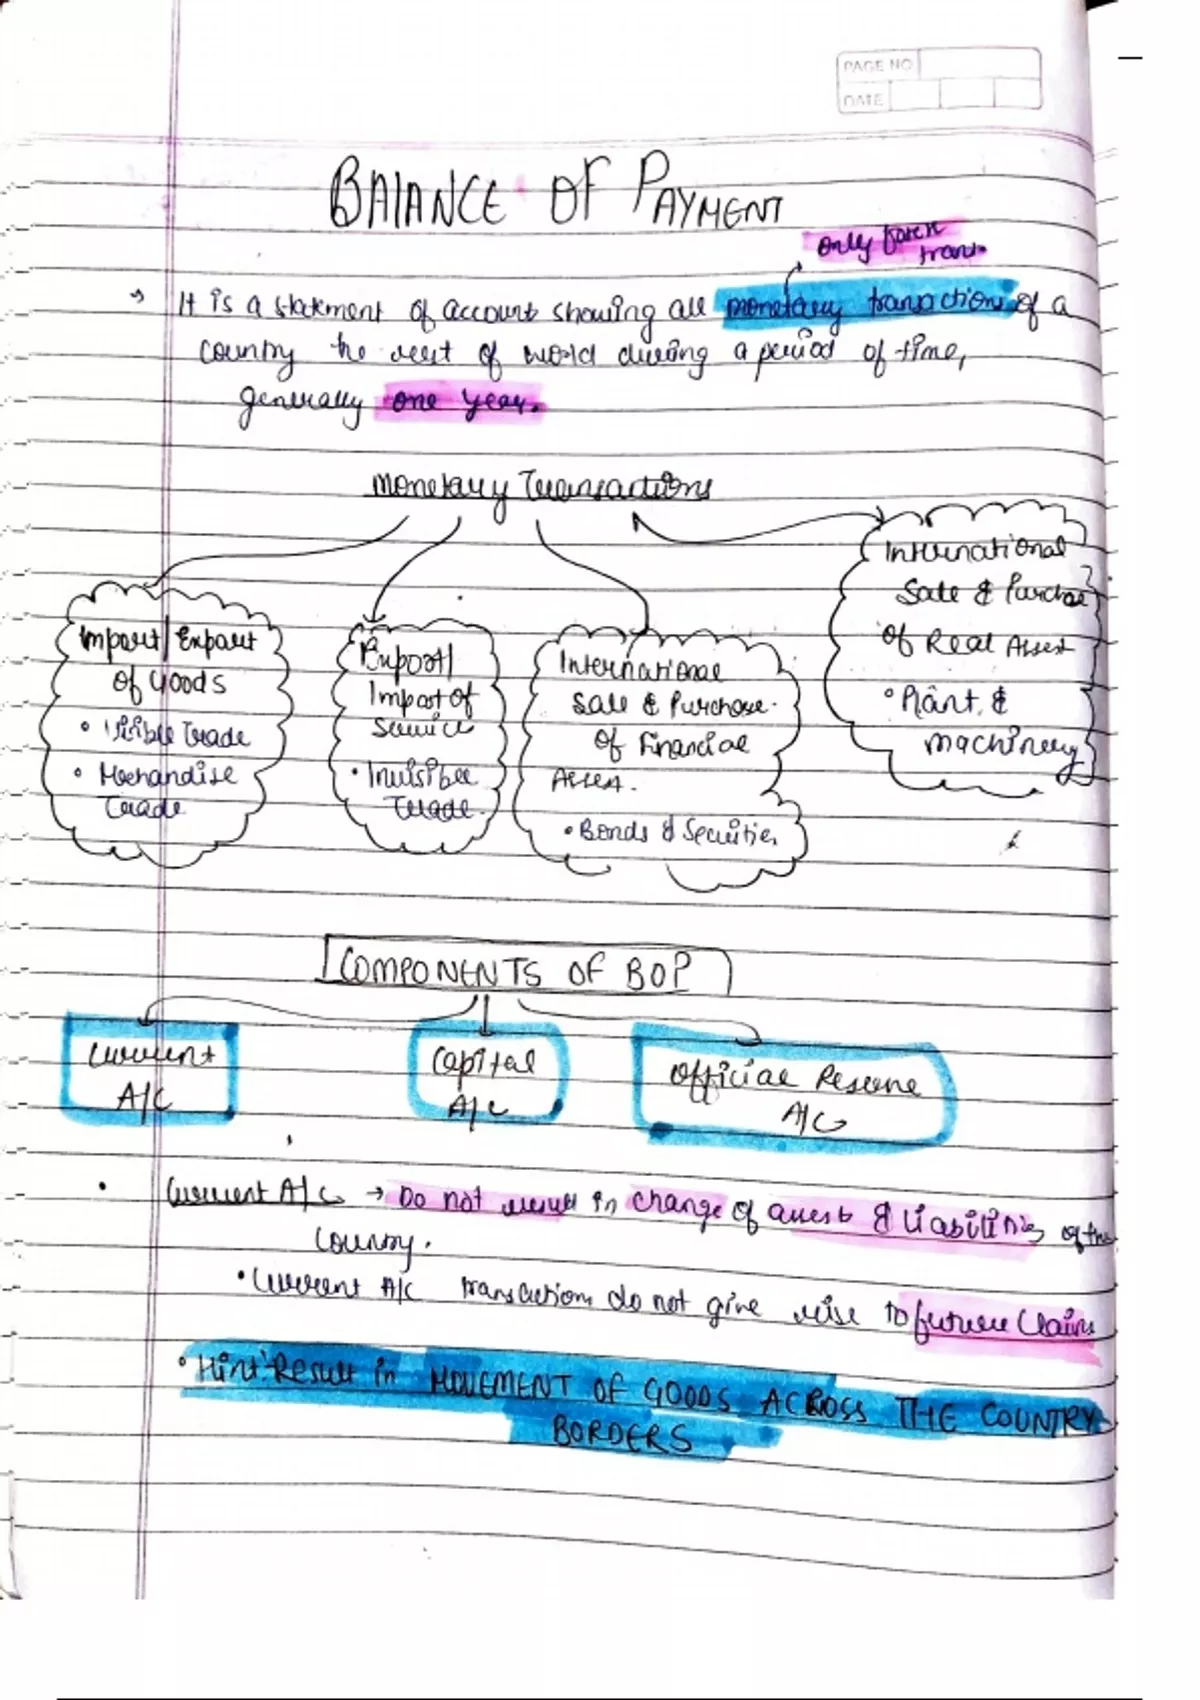 PAGE NO
DATE
BALANCE OF PAYMENT
only
trans.
→ It is a statement of account showing all monetary transactions of a
country the rest of world during a period of time,
generally one year.
Monetary Transactions
Import/Export
of Goods
• Visible Trade
• Merchandise
Trade
Export/
Import of
Service
• Invisible
Trade.
International
Sale & Purchase
of Financial
Asset.
• Bonds & Securities
International
Sale & Purchase
of Real Asset
• Plant &
Machinery
COMPONENTS OF BOP
Current
A/C
Capital
A/C
Official Reserve
A/C
• Current A/C → Do not result in change of assets & liabilities of the
Country.
• Current A/C transactions do not give rise to future claims
• Hint: Result in MOVEMENT OF GOODS ACROSS THE COUNTRY
BORDERS